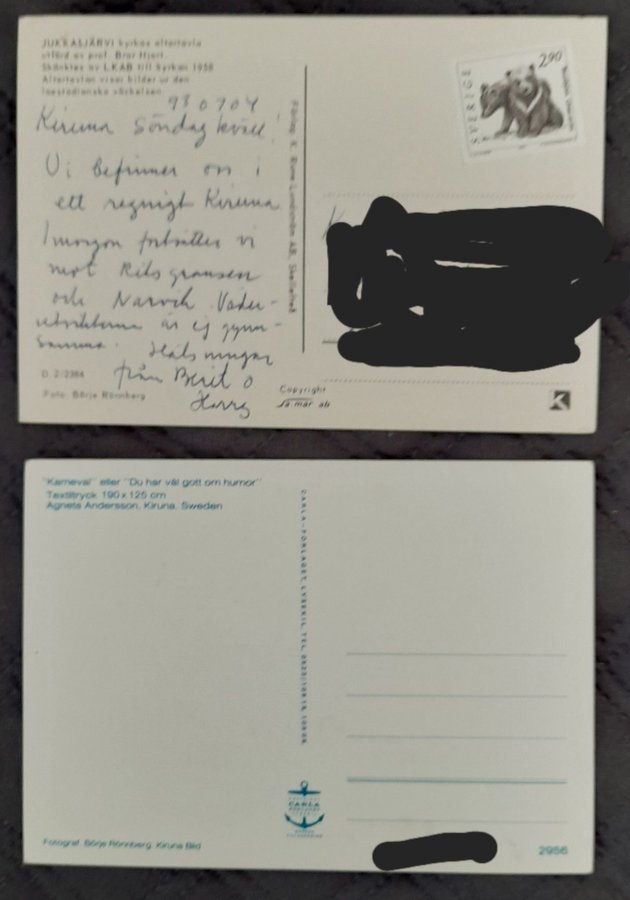 JUKKASJÄRVI kyrkas altartavla
utförd av prof. Bror Hjort
Skänktes av LKAB till kyrkan 1958
Altartavlan visar bilder ur den
laestadianska väckelsen.
930704
Kiruna Söndag kväll!
Vi befinner oss i
ett regnigt Kiruna
Imorgon fortsätter vi
mot Riksgränsen
och Narvik Väder-
utsikterna är ej gynn-
samma. Hälsningar
från Berit o
Harry
D. 2/2384
Foto: Börje Rönnberg
Förlag: K. Rune Lundström AB, Skellefteå
Copyright
SVERIGE
2,90
K
"Karneval" eller "Du har väl gott om humor"
Textiltryck 190 x 125 cm
Agneta Andersson, Kiruna, Sweden
CARLA-FÖRLAGET, LYSEKIL, TEL.
CARLA
Fotograf: Börje Rönnberg, Kiruna Bild
2956